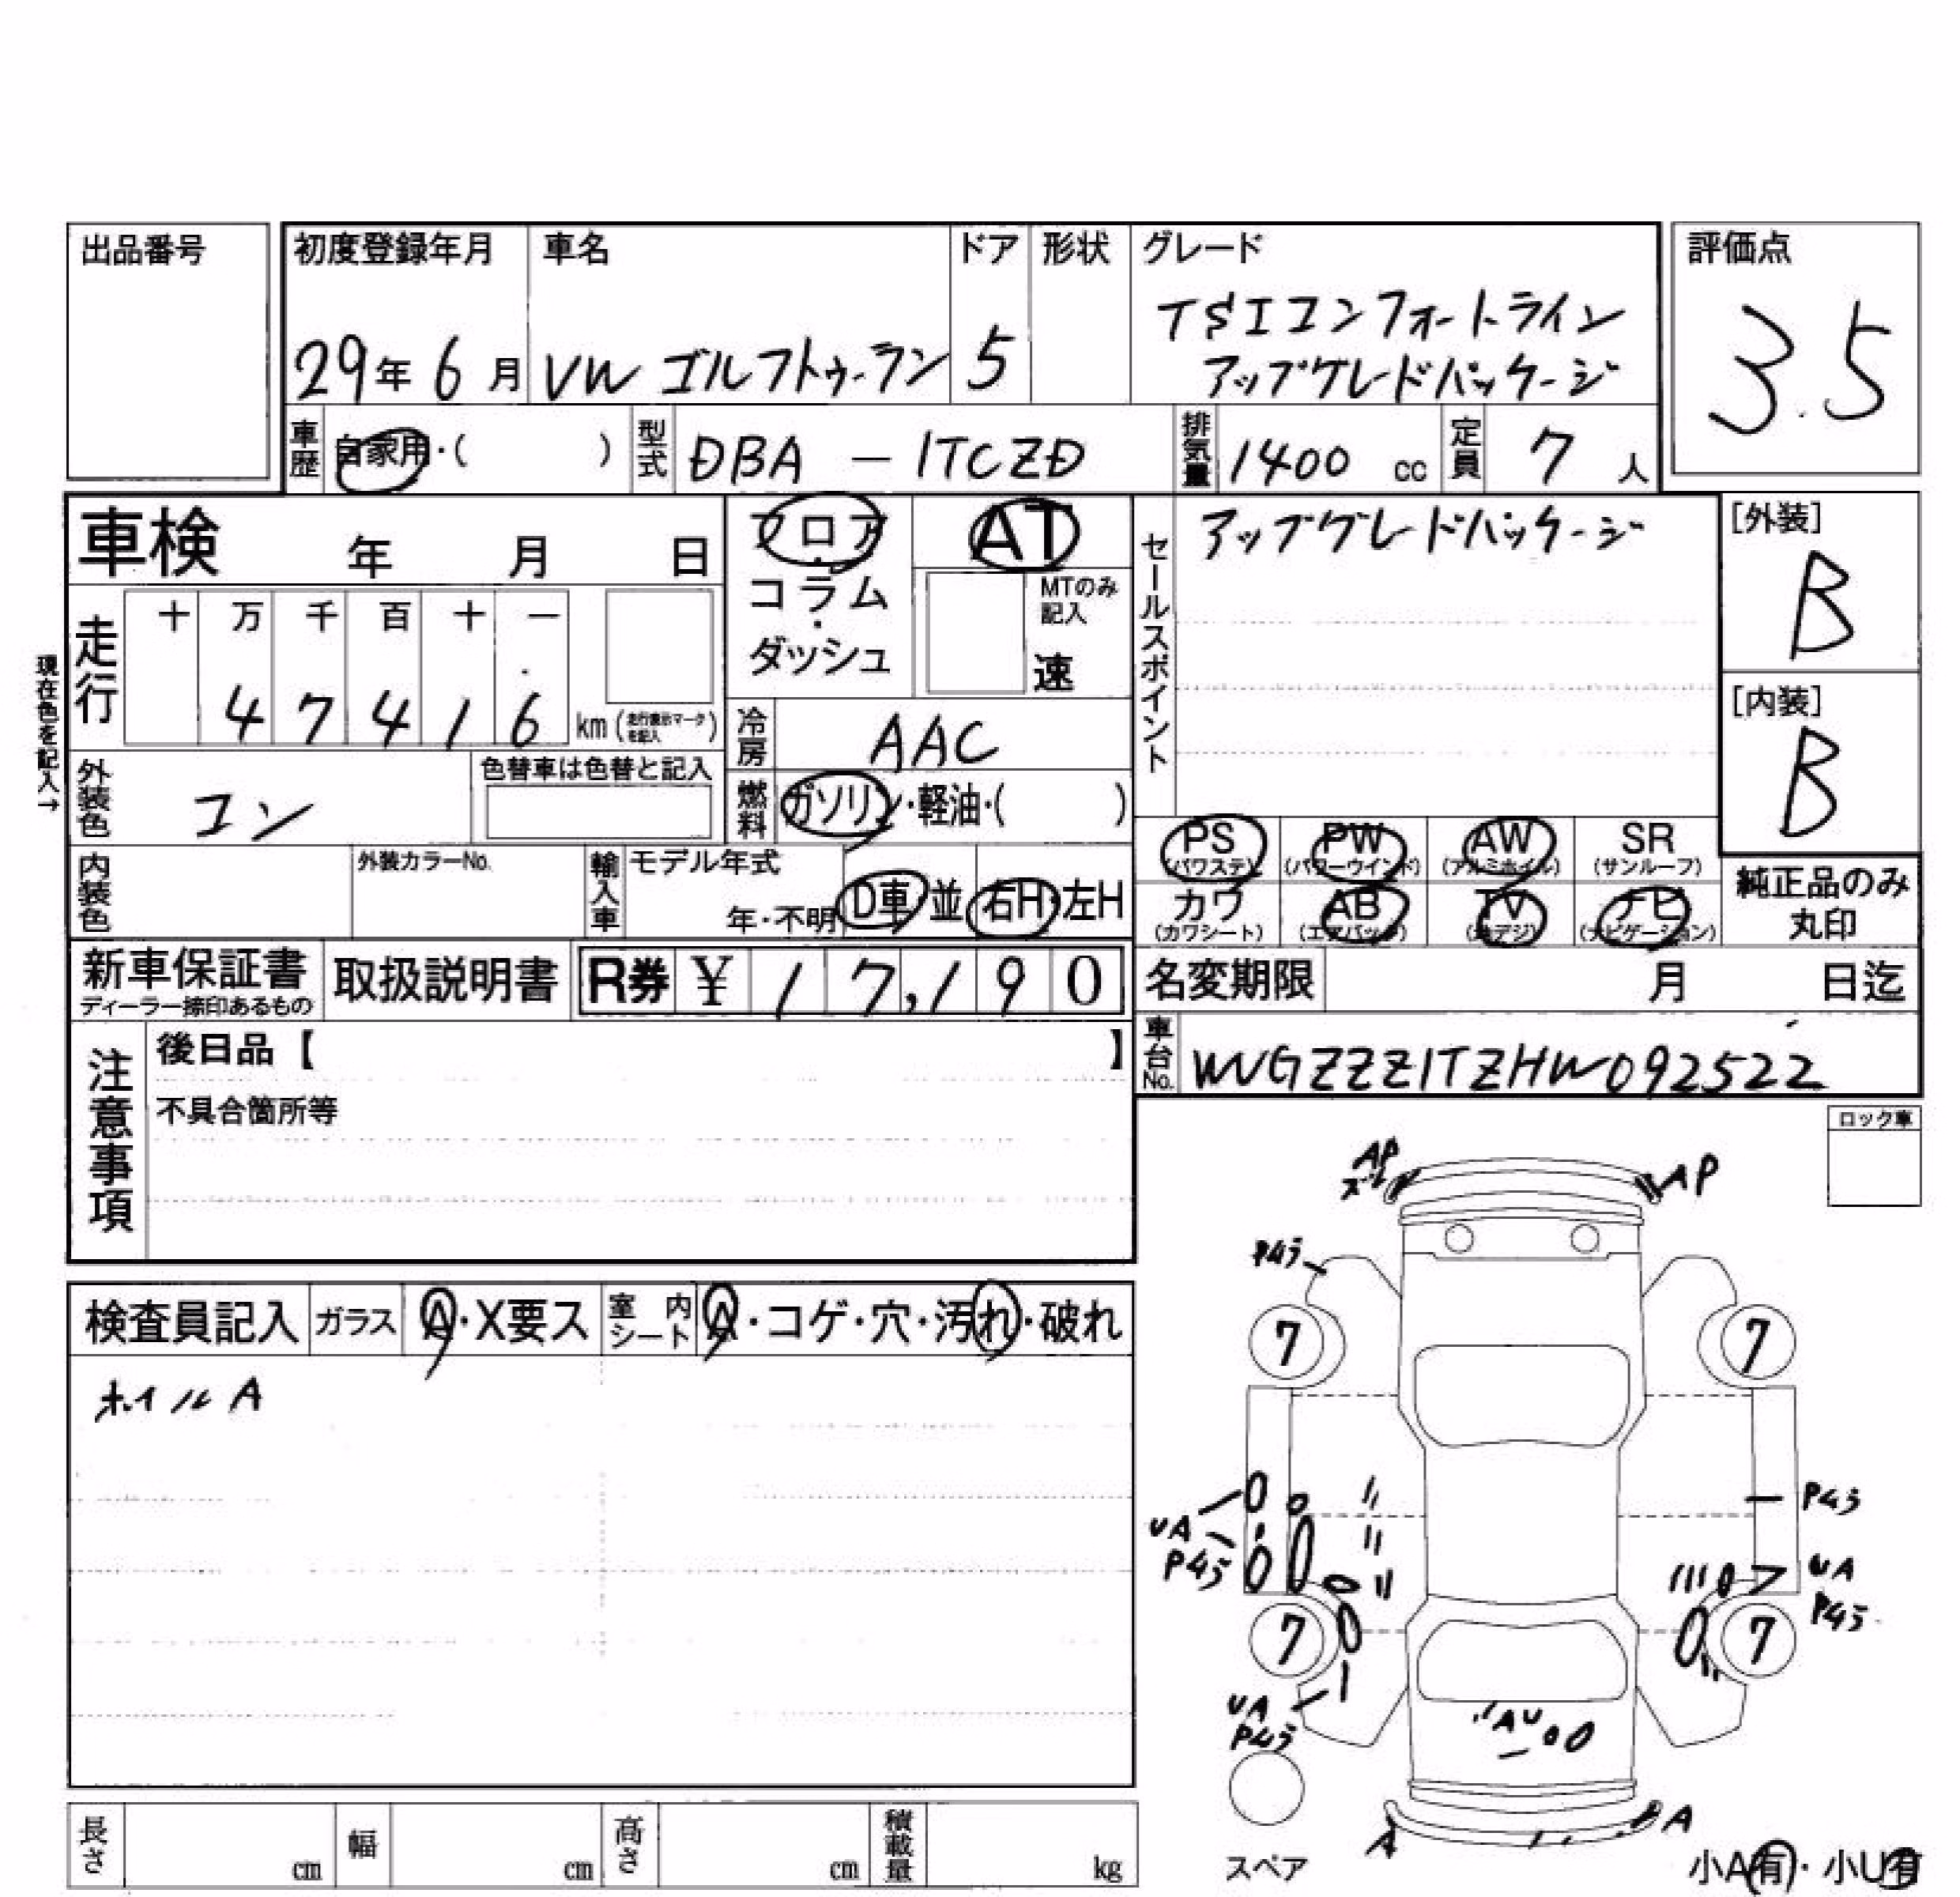 出品番号
初度登録年月 車名 ドア 形状 グレード
評価点
29年6月 VW ゴルフトゥーラン 5 TSIコンフォートライン
アップグレードパッケージ
3.5
車歴 自家用・( ) 型式 DBA - 1TCZD 排気量 1400 cc 定員 7 人
車検 年 月 日
フロア・コラム・ダッシュ
AT
MTのみ記入
速
セールスポイント アップグレードパッケージ
[外装]
B
[内装]
B
現在色を記入→
走行 十 万 千 百 十 一
4 7 4 1 6 km (走行表示マークを記入)
冷房 AAC
外装色 コン 色替車は色替と記入
燃料 ガソリン・軽油・( )
PS (パワステ) PW (パワーウインド) AW (アルミホイル) SR (サンルーフ)
カワ (カワシート) AB (エアバック) TV (地デジ) ナビ (ナビゲーション)
純正品のみ
丸印
内装色 外装カラーNo. 輸入車 モデル年式
年・不明 D車 並 右H・左H
新車保証書 取扱説明書 R券 ¥ 17,190
ディーラー捺印あるもの
名変期限 月 日迄
車台No. WVGZZZ1TZHW092522
注意事項 後日品【 】
不具合箇所等
ロック車
検査員記入 ガラス A・X要ス 室内シート A・コゲ・穴・汚れ・破れ
ホイルA
AP
AP
Pキラ
7 7
7 7
UA
Pキラ
Pキラ
UA
Pキラ
UA
Pキラ
AU
A
A
スペア
小A有・小U有
長さ cm 幅 cm 高さ cm 積載量 kg